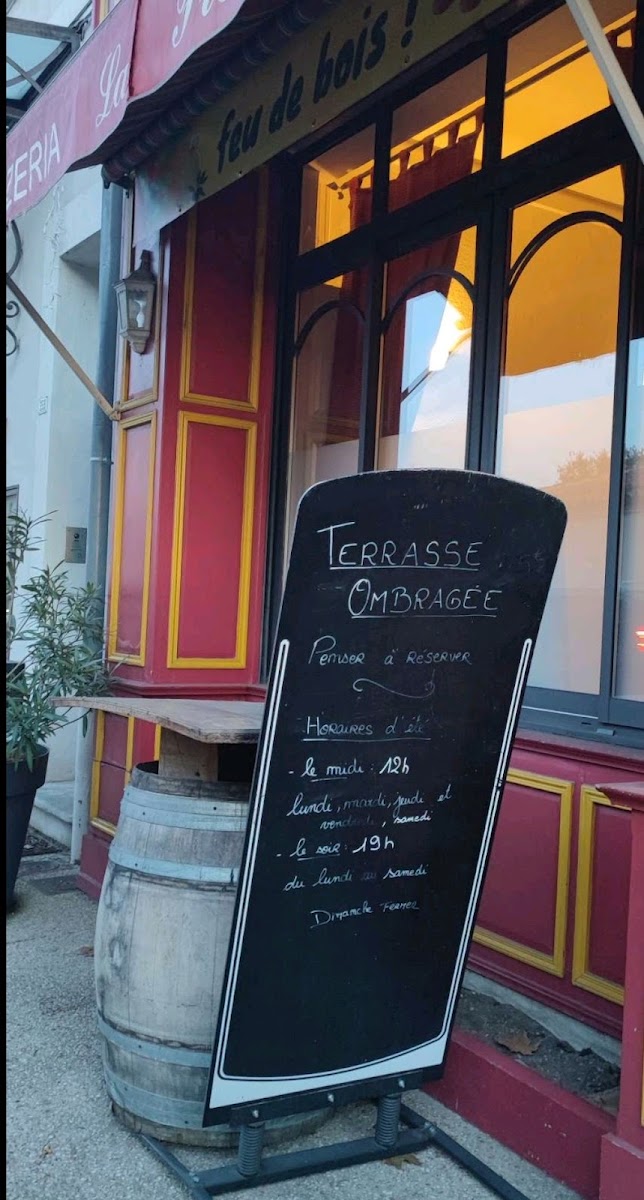 ZERIA La
feu de bois !
TERRASSE
OMBRAGÉE
Penser à réserver
Horaires d'été
- le midi : 12h
lundi, mardi, jeudi et
vendredi, samedi
- le soir : 19h
du lundi au samedi
Dimanche Fermer